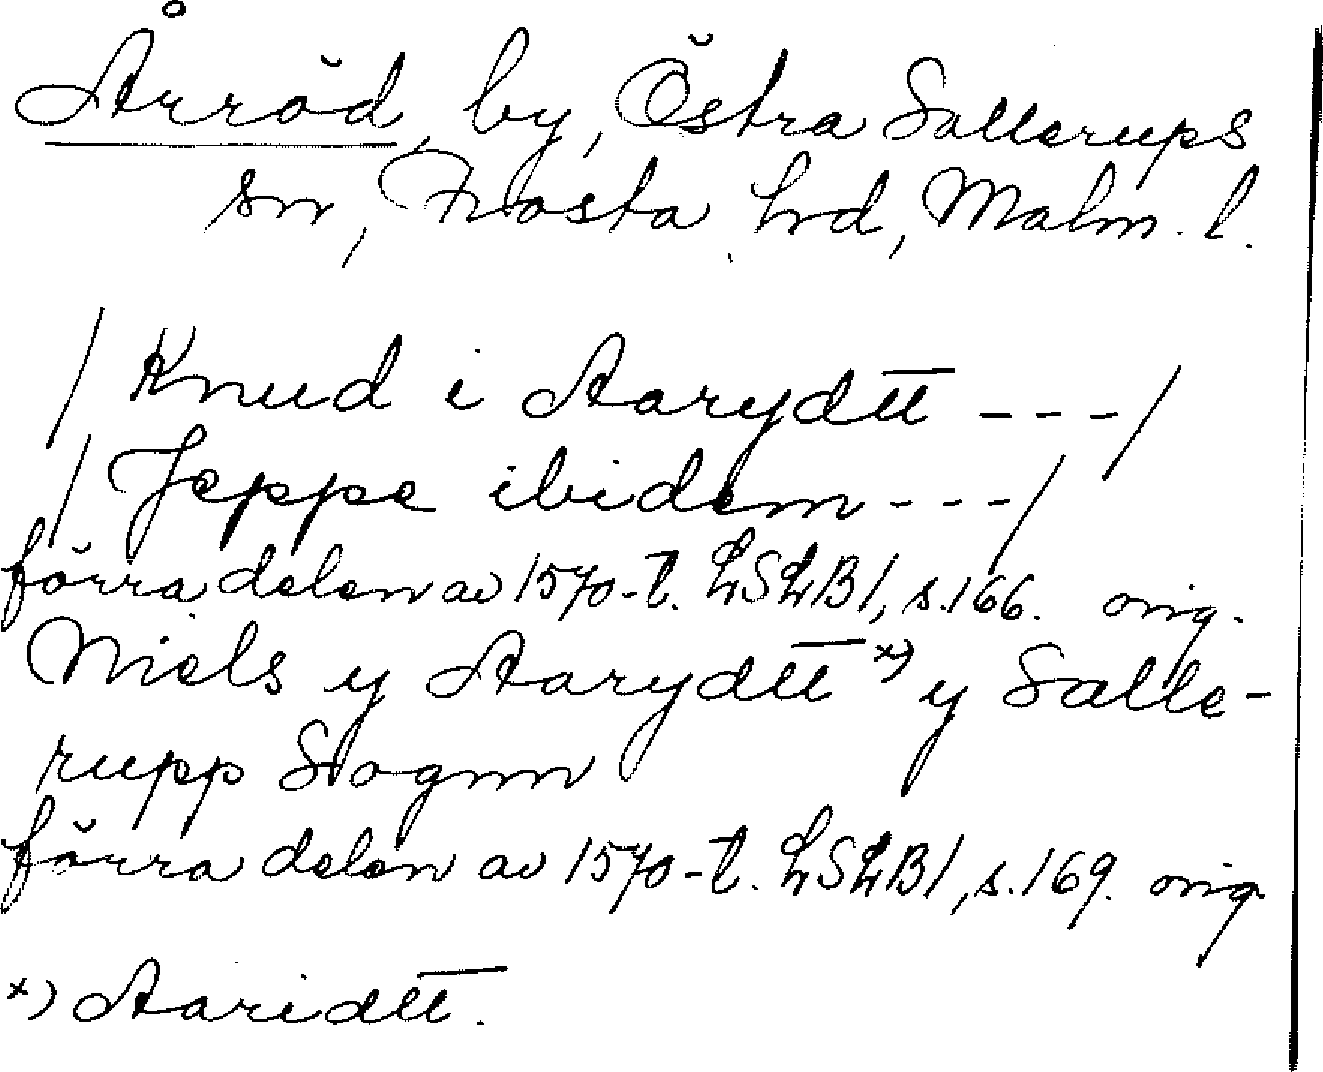 Årröd, by, Östra Sallerups
sn, Frosta hrd, Malm. l.
/ Knud i Aarydtt ---/
/ Jeppe ibidem ---/
förra delen av 1570-t. LSLB1, s.166. orig.
Niels y Aarydtt x) y Salle-
rupp Sognn
förra delen av 1570-t. LSLB1, s.169. orig.
x) Aaridtt.